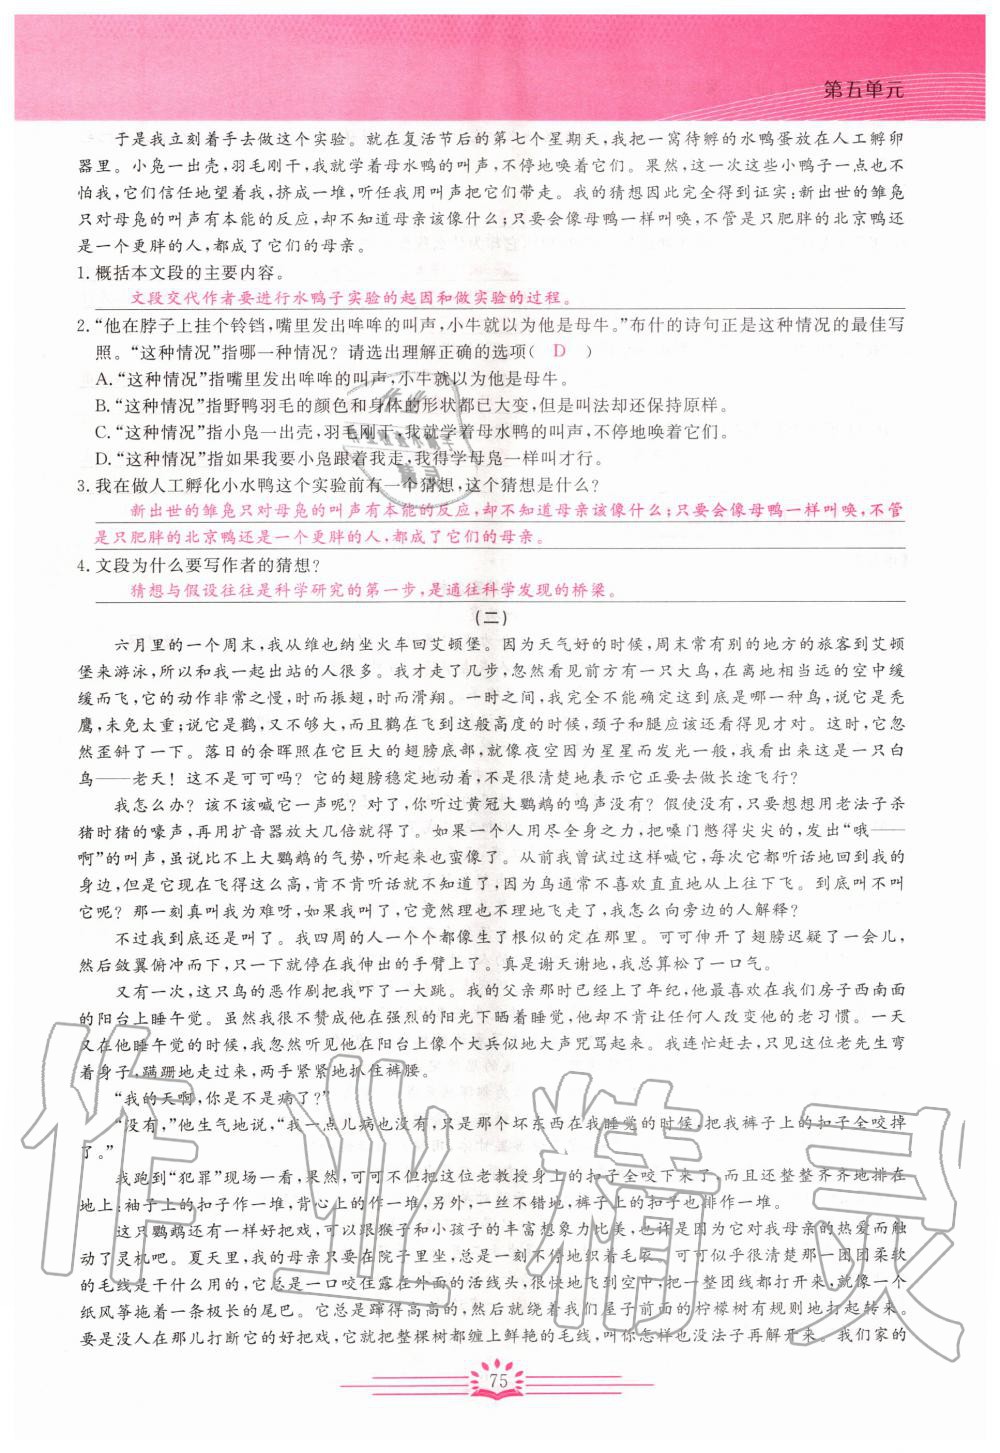 第五单元
于是我立刻着手去做这个实验。就在复活节后的第七个星期天,我把一窝待孵的水鸭蛋放在人工孵卵
器里。小凫一出壳,羽毛刚干,我就学着母水鸭的叫声,不停地唤着它们。果然,这一次这些小鸭子一点也不
怕我,它们信任地望着我,挤成一堆,听任我用叫声把它们带走。我的猜想因此完全得到证实:新出世的雏凫
只对母凫的叫声有本能的反应,却不知道母亲该像什么;只要会像母鸭一样叫唤,不管是只肥胖的北京鸭还
是一个更胖的人,都成了它们的母亲。
1. 概括本文段的主要内容。
文段交代作者要进行水鸭子实验的起因和做实验的过程。
2. “他在脖子上挂个铃铛,嘴里发出哞哞的叫声,小牛就以为他是母牛。”布什的诗句正是这种情况的最佳写
照。“这种情况”指哪一种情况? 请选出理解正确的选项( D )
A. “这种情况”指嘴里发出哞哞的叫声,小牛就以为他是母牛。
B. “这种情况”指野鸭羽毛的颜色和身体的形状都已大变,但是叫法却还保持原样。
C. “这种情况”指小凫一出壳,羽毛刚干,我就学着母水鸭的叫声,不停地唤着它们。
D. “这种情况”指如果我要小凫跟着我走,我得学母凫一样叫才行。
3. 我在做人工孵化小水鸭这个实验前有一个猜想,这个猜想是什么?
新出世的雏凫只对母凫的叫声有本能的反应,却不知道母亲该像什么;只要会像母鸭一样叫唤,不管
是只肥胖的北京鸭还是一个更胖的人,都成了它们的母亲。
4. 文段为什么要写作者的猜想?
猜想与假设往往是科学研究的第一步,是通往科学发现的桥梁。
(二)
六月里的一个周末,我从维也纳坐火车回艾顿堡。因为天气好的时候,周末常有别的地方的旅客到艾顿
堡来游泳,所以和我一起出站的人很多。我才走了几步,忽然看见前方有一只大鸟,在离地相当远的空中缓
缓而飞,它的动作非常之慢,时而振翅,时而滑翔。一时之间,我完全不能确定这到底是哪一种鸟,说它是秃
鹰,未免太重;说它是鹳,又不够大,而且鹳在飞到这般高度的时候,颈子和腿应该还看得见才对。这时,它忽
然歪斜了一下。落日的余晖照在它巨大的翅膀底部,就像夜空因为星星而发光一般,我看出来这是一只白
鸟——老天! 这不是可可吗? 它的翅膀稳定地动着,不是很清楚地表示它正要去做长途飞行?
我怎么办? 该不该喊它一声呢? 对了,你听过黄冠大鹦鹉的鸣声没有? 假使没有,只要想想用老法子杀
猪时猪的嚎声,再用扩音器放大几倍就得了。如果一个人用尽全身之力,把嗓门憋得尖尖的,发出“哦——
啊”的叫声,虽说比不上大鹦鹉的气势,听起来也蛮像了。从前我曾试过这样喊它,每次它都听话地回到我的
身边,但是它现在飞得这么高,肯不肯听话就不知道了,因为鸟通常不喜欢直直地从上往下飞。到底叫不叫
它呢? 那一刻真叫我为难呀,如果我叫了,它竟然理也不理地飞走了,我怎么向旁边的人解释?
不过我到底还是叫了。我四周的人一个个都像生了根似的定在那里。可可伸开了翅膀迟疑了一会儿,
然后敛翼俯冲而下,只一下就停在我伸出的手臂上了。真是谢天谢地,我总算松了一口气。
又有一次,这只鸟的恶作剧把我吓了一大跳。我的父亲那时已经上了年纪,他最喜欢在我们房子西南面
的阳台上睡午觉。虽然我很不赞成他在强烈的阳光下晒着睡觉,但他却不肯让任何人改变他的老习惯。一天
又在他睡午觉的时候,我忽然听见他在阳台上像个大兵似地大声咒骂起来。我连忙赶去,只见这位老先生弯
着身子,蹒跚地走过来,两手紧紧地抓住裤腰。
“我的天啊,你是不是病了?”
“没有,”他生气地说,“我一点儿病也没有,只是那个坏东西在我睡觉的时候,把我裤子上的扣子全咬掉
了。”
我跑到“犯罪”现场一看,果然,可可不但把这位老教授身上的扣子全咬了下来,而且还整整齐齐地排在
地上:袖子上的扣子作一堆,背心上的作一堆,另外,一丝不错地,裤子上的扣子也排作一堆。
这只鹦鹉还有一样好把戏,可以跟猴子和小孩子的丰富想象力比美,或许是因为它对我母亲的热爱而触
动了灵机吧。夏天里,我的母亲只要在院子里坐,总是一刻不停地织着毛衣。可可似乎很清楚那一团团柔软
的毛线是干什么用的,它总是一口咬住露在外面的活线头,很快地飞到空中,把一整团线都打开来,就像一个
纸风筝拖着一条极长的尾巴。它总是蹿得高高的,然后就绕着我们屋子前面的柠檬树有规则地打起转来。
要是没人在那儿打断它的好把戏,它就把整棵树都缠上鲜艳的毛线,叫你怎样也没法子再解开来。我们家的
75
作业精灵